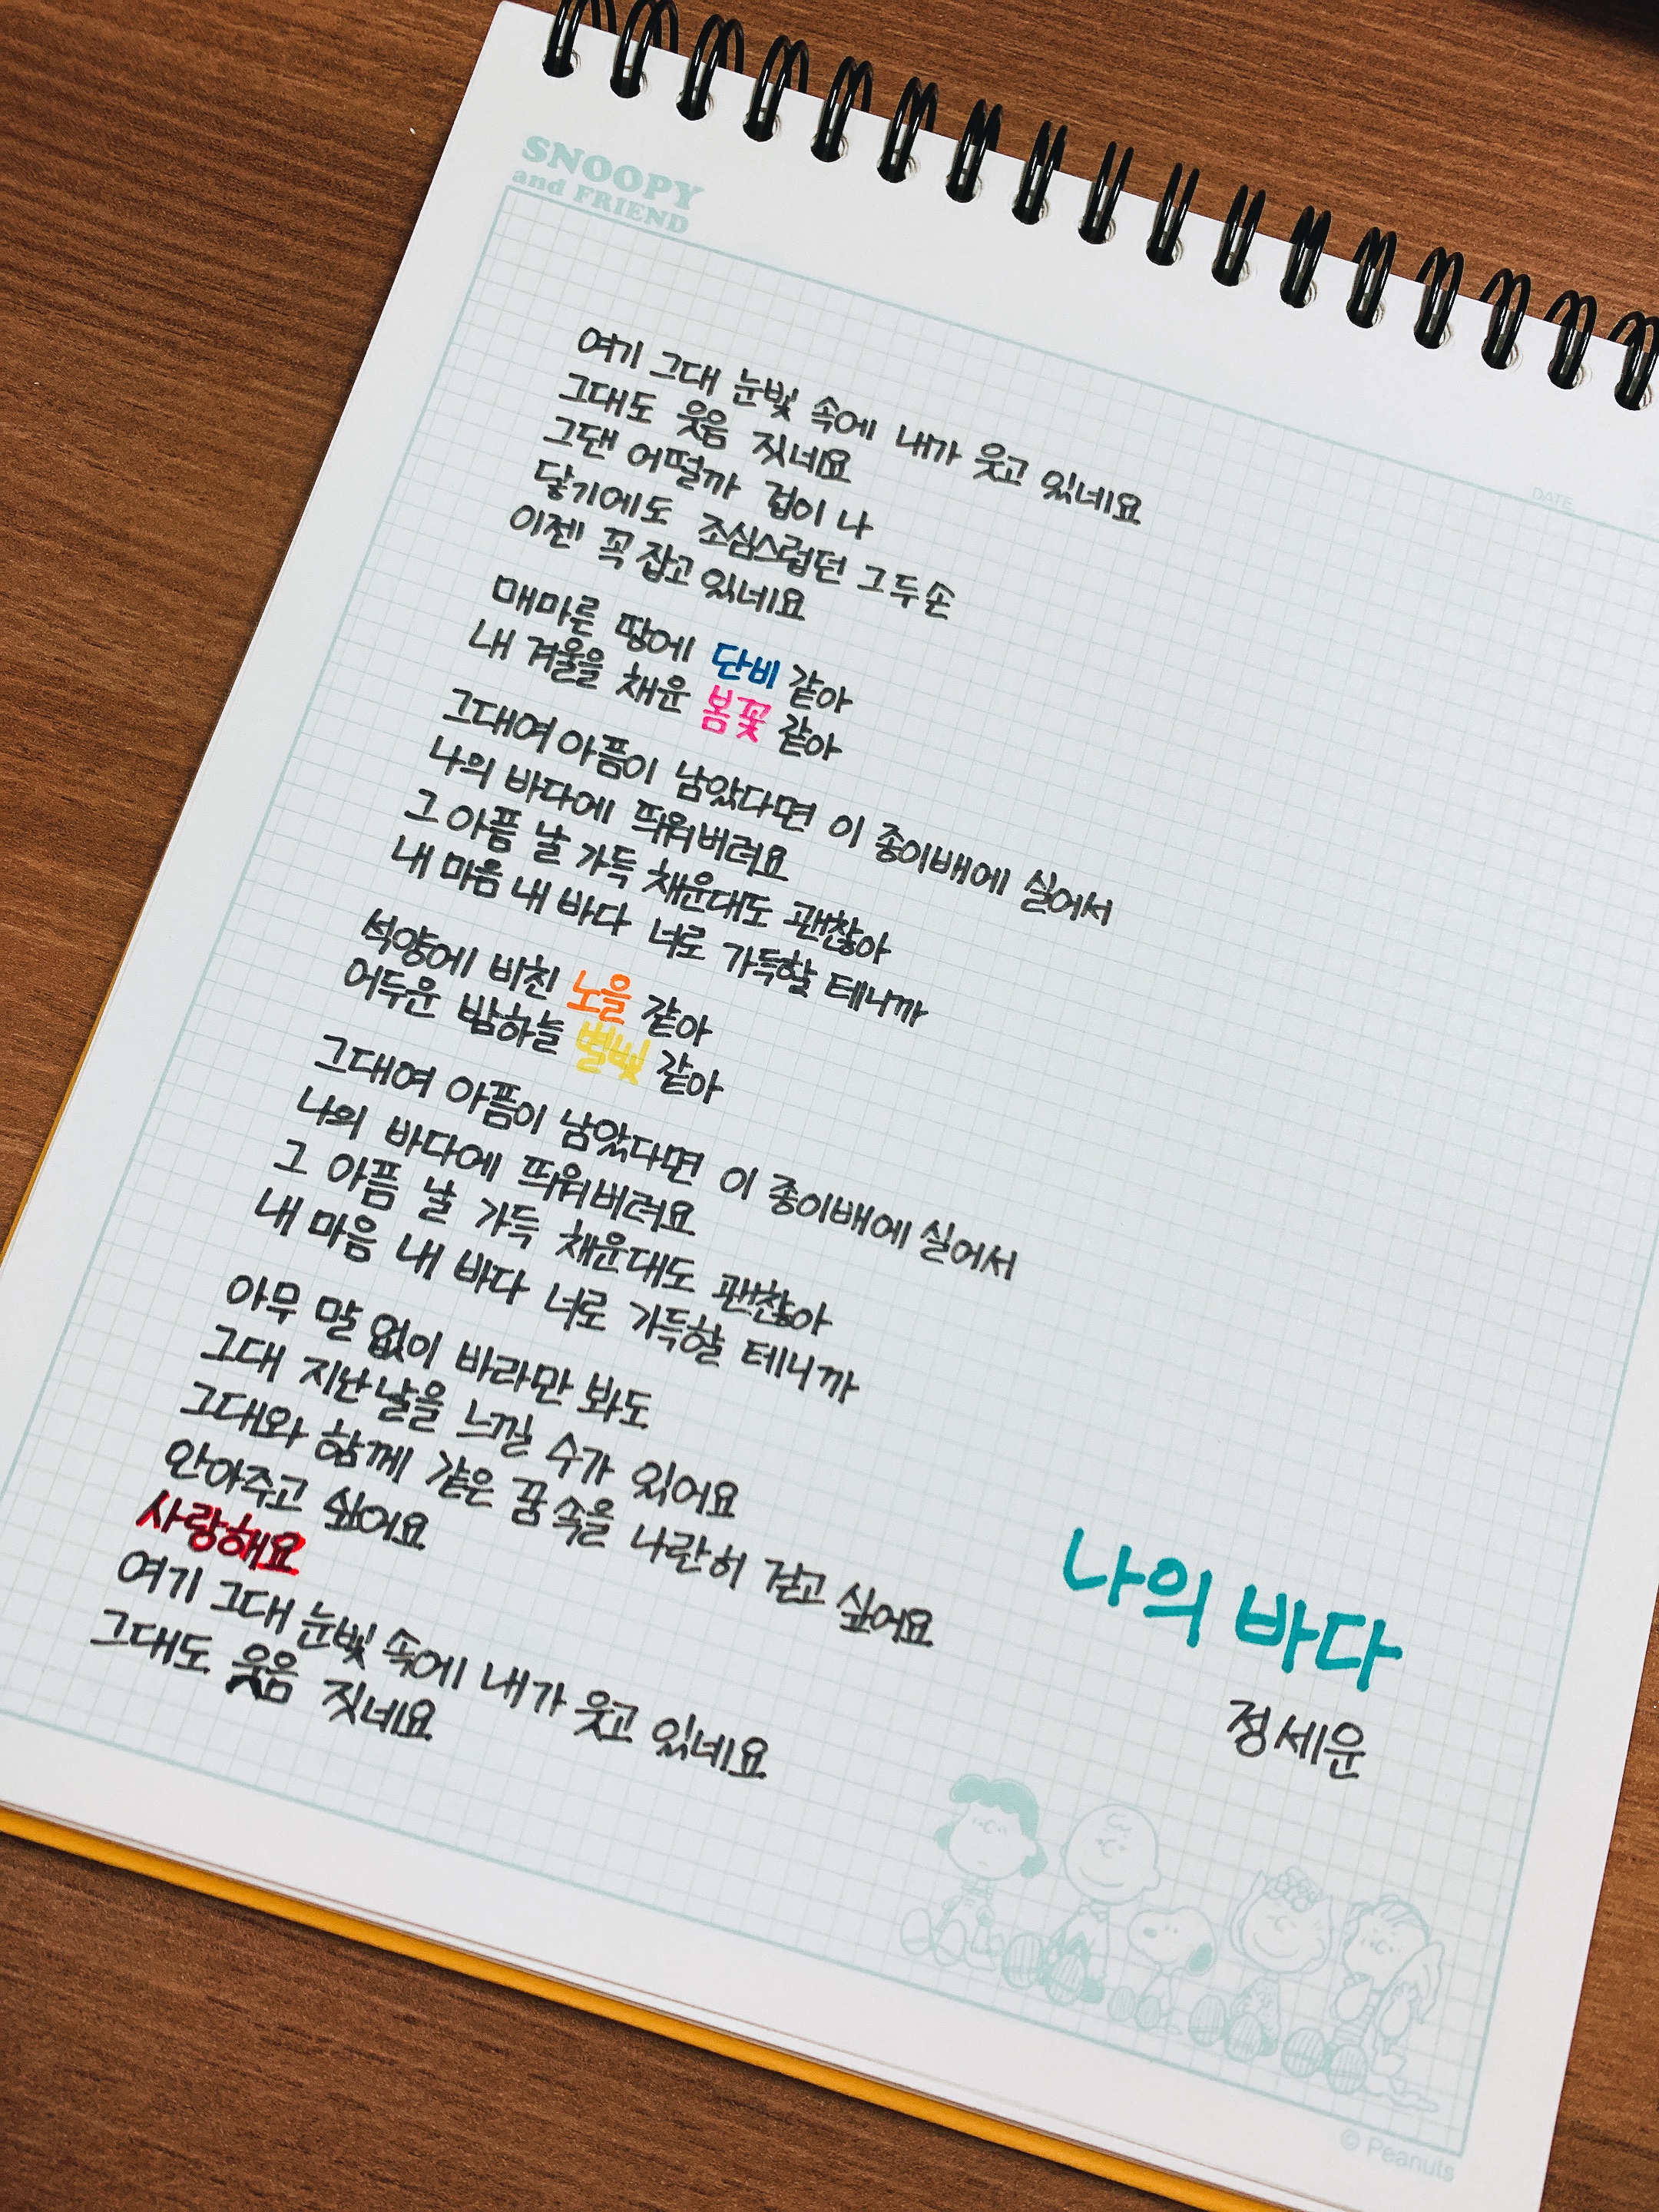 SNOOPY
and FRIEND
DATE
여기 그대 눈빛 속에 내가 웃고 있네요
그대도 웃음 짓네요
그댄 어떨까 겁이 나
닿기에도 조심스럽던 그 두 손
이젠 꼭 잡고 있네요
메마른 땅에 단비 같아
내 겨울을 채운 봄꽃 같아
그대여 아픔이 남았다면 이 종이배에 실어서
나의 바다에 띄워버려요
그 아픔 날 가득 채운대도 괜찮아
내 마음 내 바다 너로 가득할 테니까
석양에 비친 노을 같아
어두운 밤하늘 별빛 같아
그대여 아픔이 남았다면 이 종이배에 실어서
나의 바다에 띄워버려요
그 아픔 날 가득 채운대도 괜찮아
내 마음 내 바다 너로 가득할 테니까
아무 말 없이 바라만 봐도
그대 지난날을 느낄 수가 있어요
그대와 함께 같은 꿈 속을 나란히 걷고 싶어요
안아주고 싶어요
사랑해요
여기 그대 눈빛 속에 내가 웃고 있네요
그대도 웃음 짓네요
나의 바다
정세운
© Peanuts